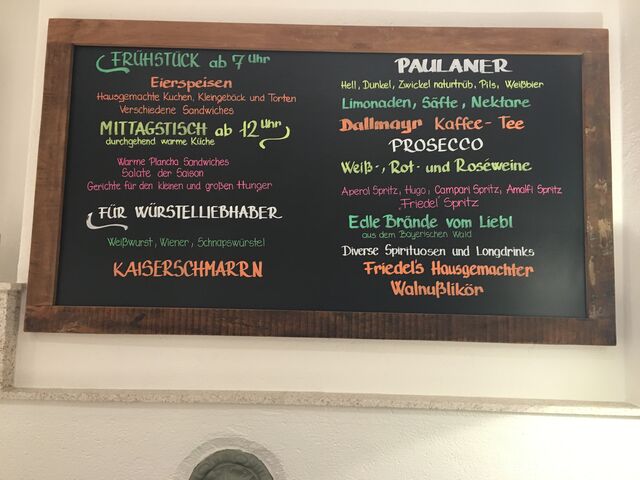 FRÜHSTÜCK ab 7 Uhr
Eierspeisen
Hausgemachte Kuchen, Kleingebäck und Torten
Verschiedene Sandwiches
MITTAGSTISCH ab 12 Uhr
durchgehend warme Küche
Warme Plancha Sandwiches
Salate der Saison
Gerichte für den kleinen und großen Hunger
FÜR WÜRSTELLIEBHABER
Weißwurst, Wiener, Schnapswürstel
KAISERSCHMARRN
PAULANER
Hell, Dunkel, Zwickel naturtrüb, Pils, Weißbier
Limonaden, Säfte, Nektare
Dallmayr Kaffee - Tee
PROSECCO
Weiß-, Rot- und Roséweine
Aperol Spritz, Hugo, Campari Spritz, Amalfi Spritz
„Friedel" Spritz
Edle Brände vom Liebl
aus dem Bayerischen Wald
Diverse Spirituosen und Longdrinks
Friedel's Hausgemachter
Walnußlikör